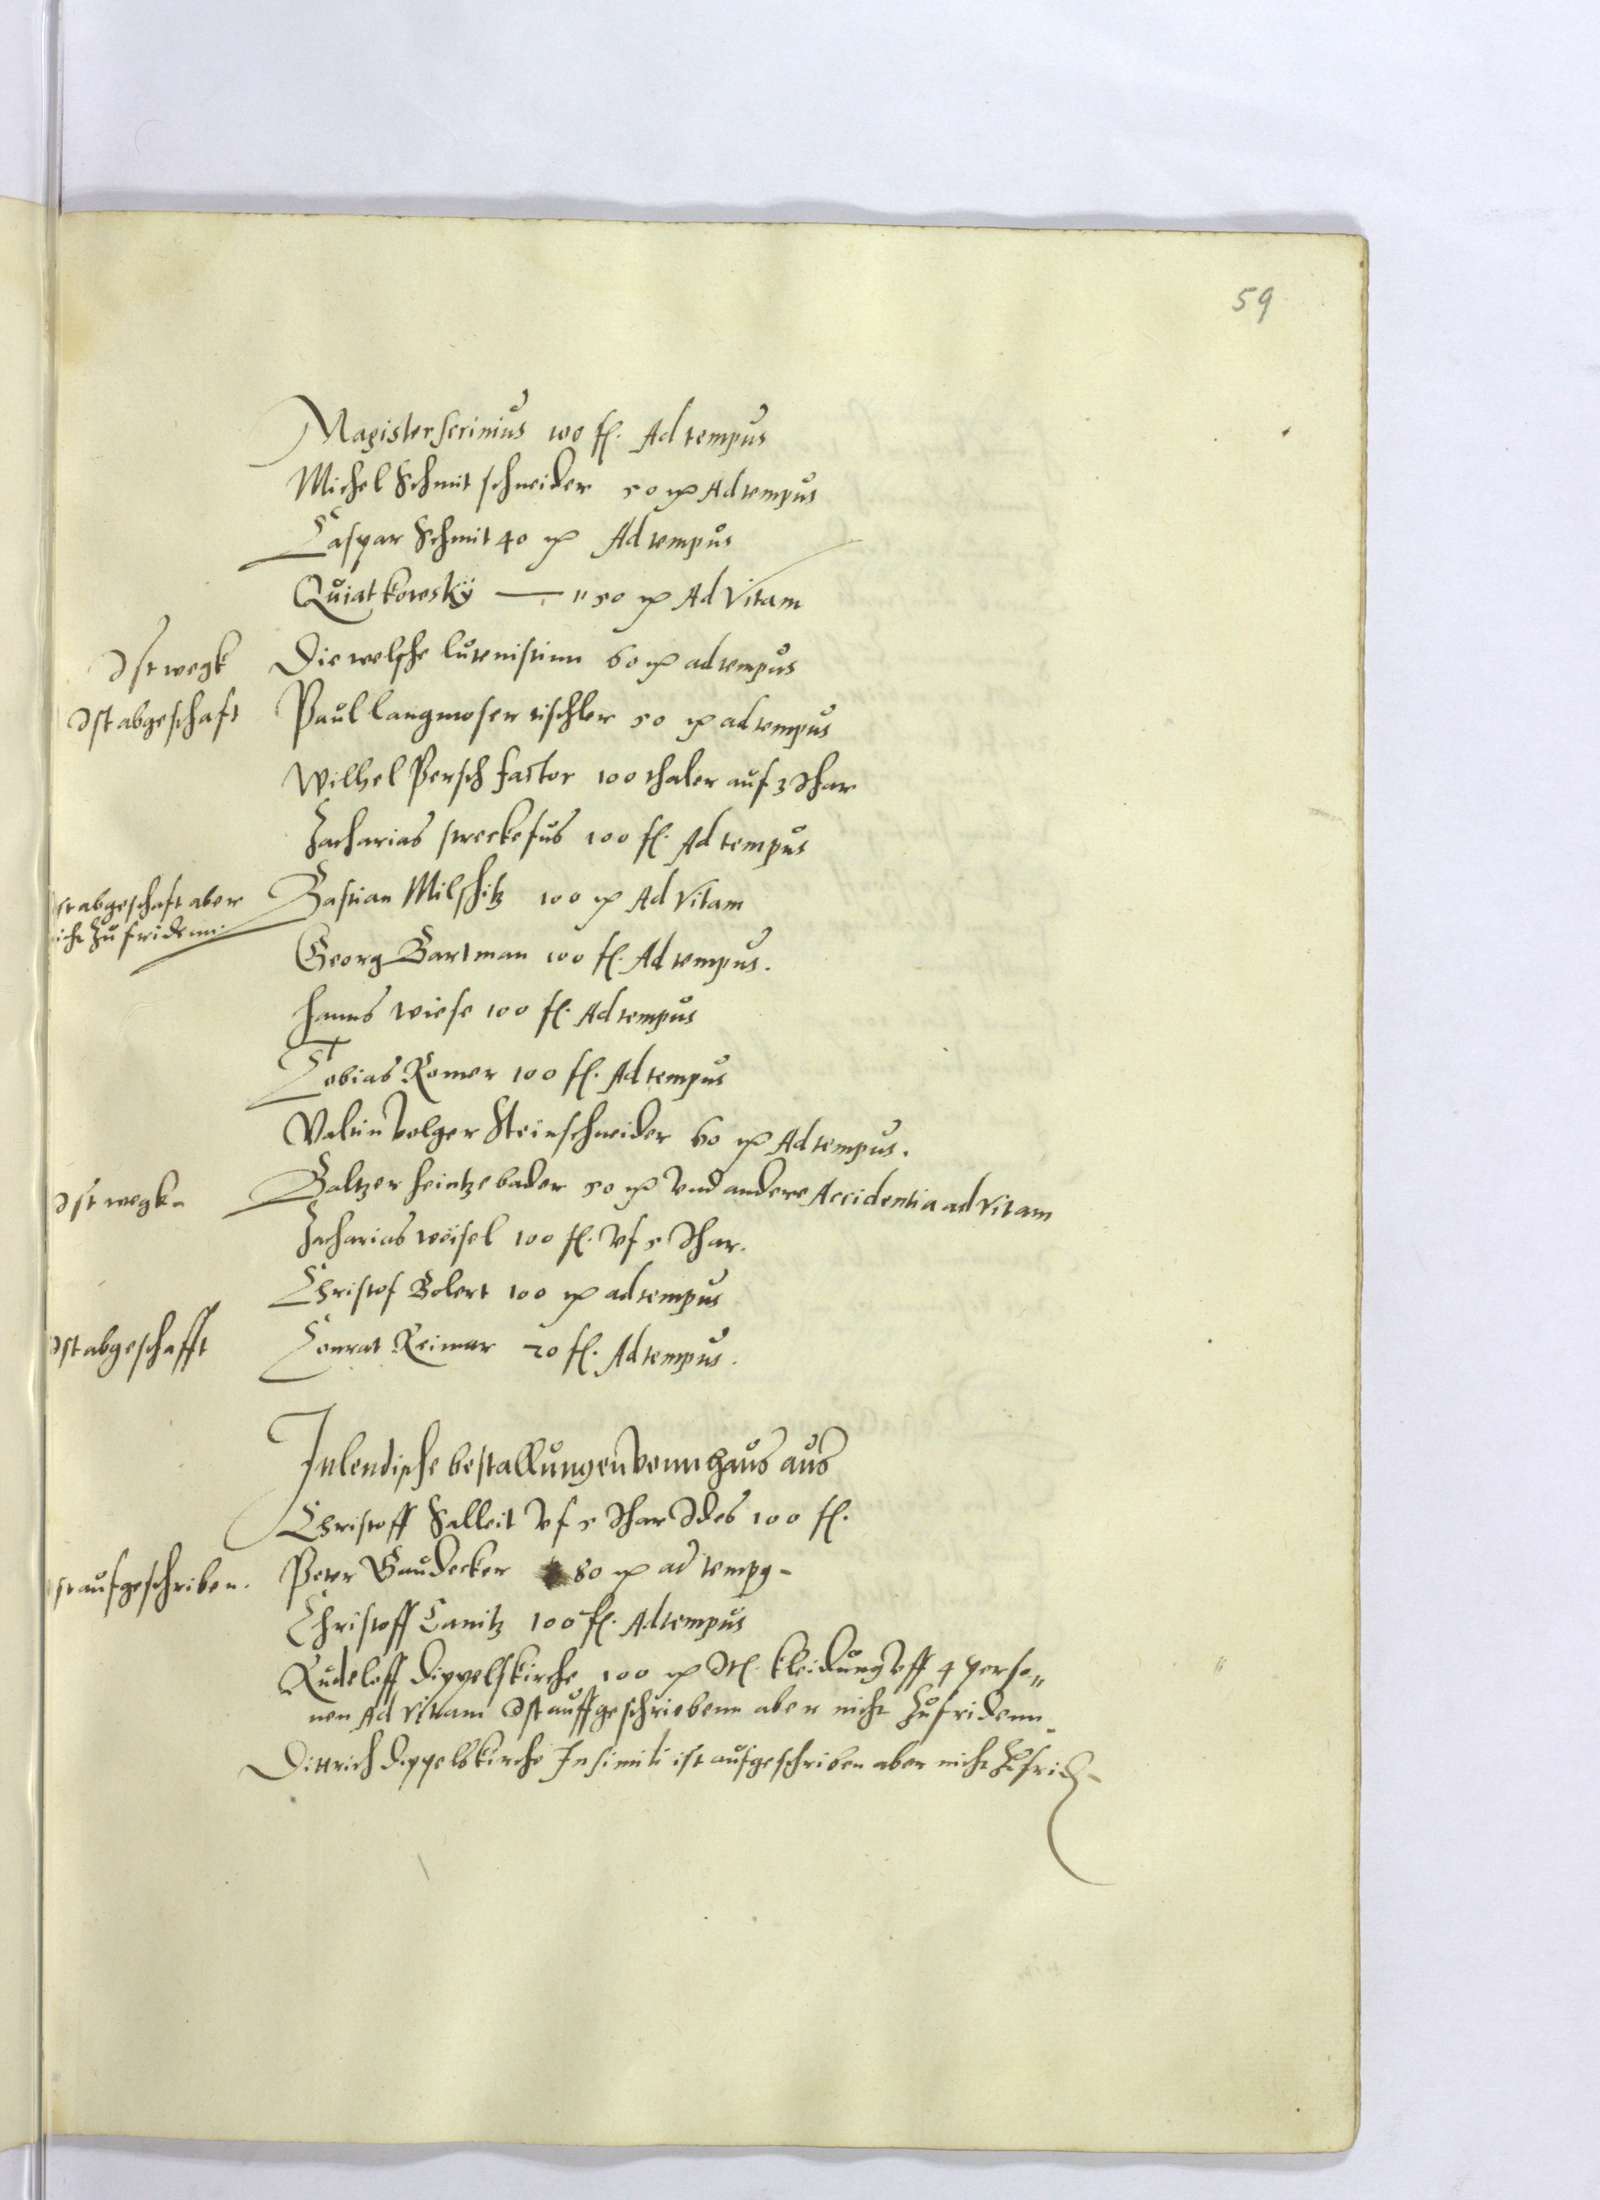 59
Magister scrinius 100 fl. Ad tempus
Michel Schmit schneider 50 mr Ad tempus
Caspar Schmit 40 mr Ad tempus
Quiatkowskÿ — " 50 mr Ad Vitam
Ist wegk Die welsche lutenistinn 60 mr ad tempus
Ist abgeschaft Paul langmoser tischler 50 mr ad tempus
Wilhel Persch factor 100 thaler auf 3 Ihar
Zacharias streckefus 100 fl. Ad tempus
Ist abgeschaft aber Bastian Milschitz 100 mr Ad Vitam
nicht zufridenn.
Georg Bartman 100 fl. Ad tempus.
Hanns wiese 100 fl. Ad tempus
Tobias Romer 100 fl. Ad tempus
Valtin volger Steinschneider 60 mr Ad tempus.
Ist wegk Baltzer heintze bader 50 mr vnd andere Accidentia ad vitam
Zacharias weisel 100 fl. vf 5 Ihar.
Christof Bolert 100 mr ad tempus
Ist abgeschafft Conrat Reimer 20 fl. Ad tempus.
Inlendische bestallungen vonn haus aus
Christoff Falleit vf 5 Ihar Ides 100 fl.
Ist aufgeschriben. Peter Gaudecker 80 mr ad temp9
Christoff Canitz 100 fl. Ad tempus
Rudeloff Dippelskirche 100 mr kleidung vff 4 perso"
nen Ad Vitam Ist auffgeschriebenn aber nicht zufridenn
Dittrich dippelskirche In simili ist aufgeschriben aber nicht zufrid